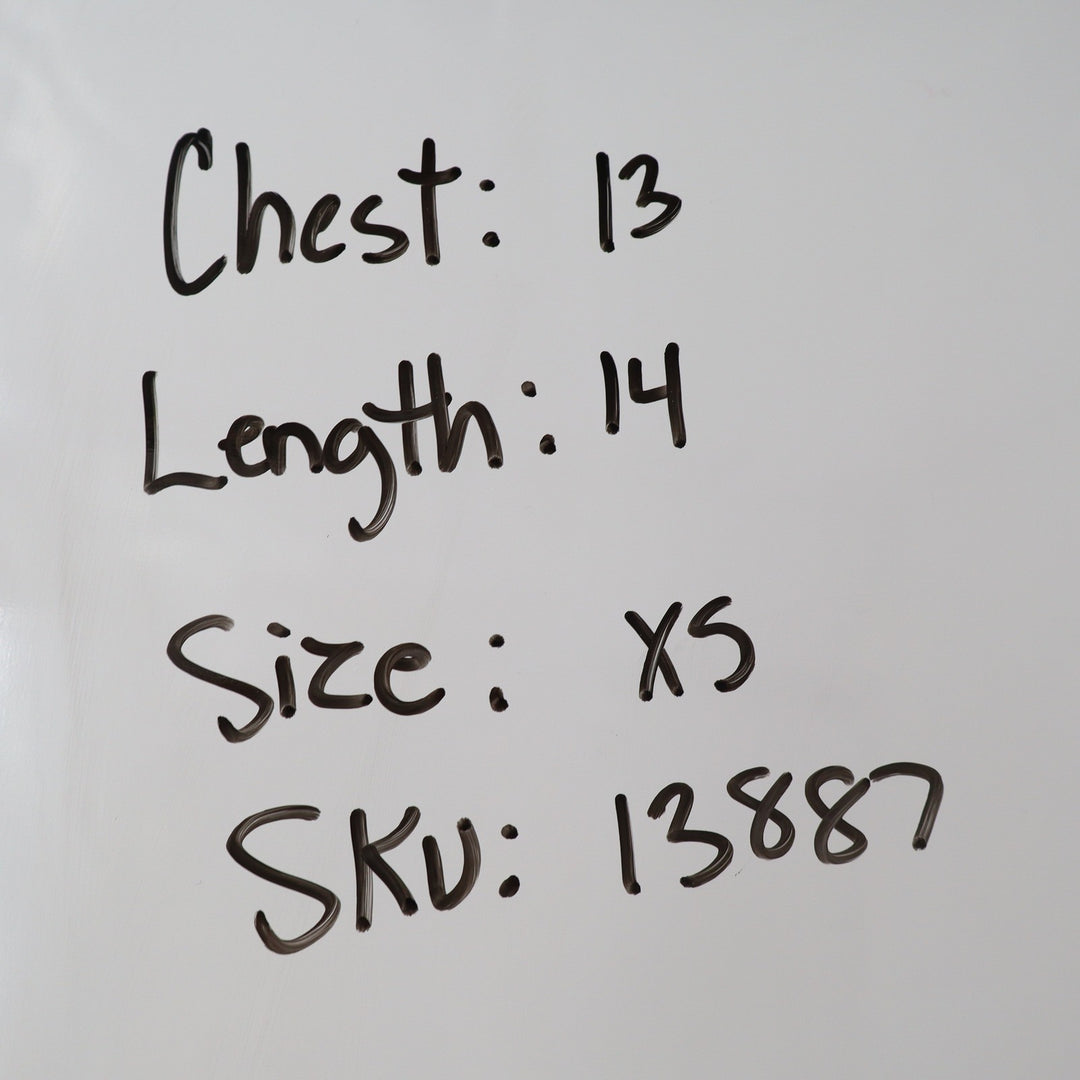 Chest: 13
Length: 14
Size: XS
SKU: 13887